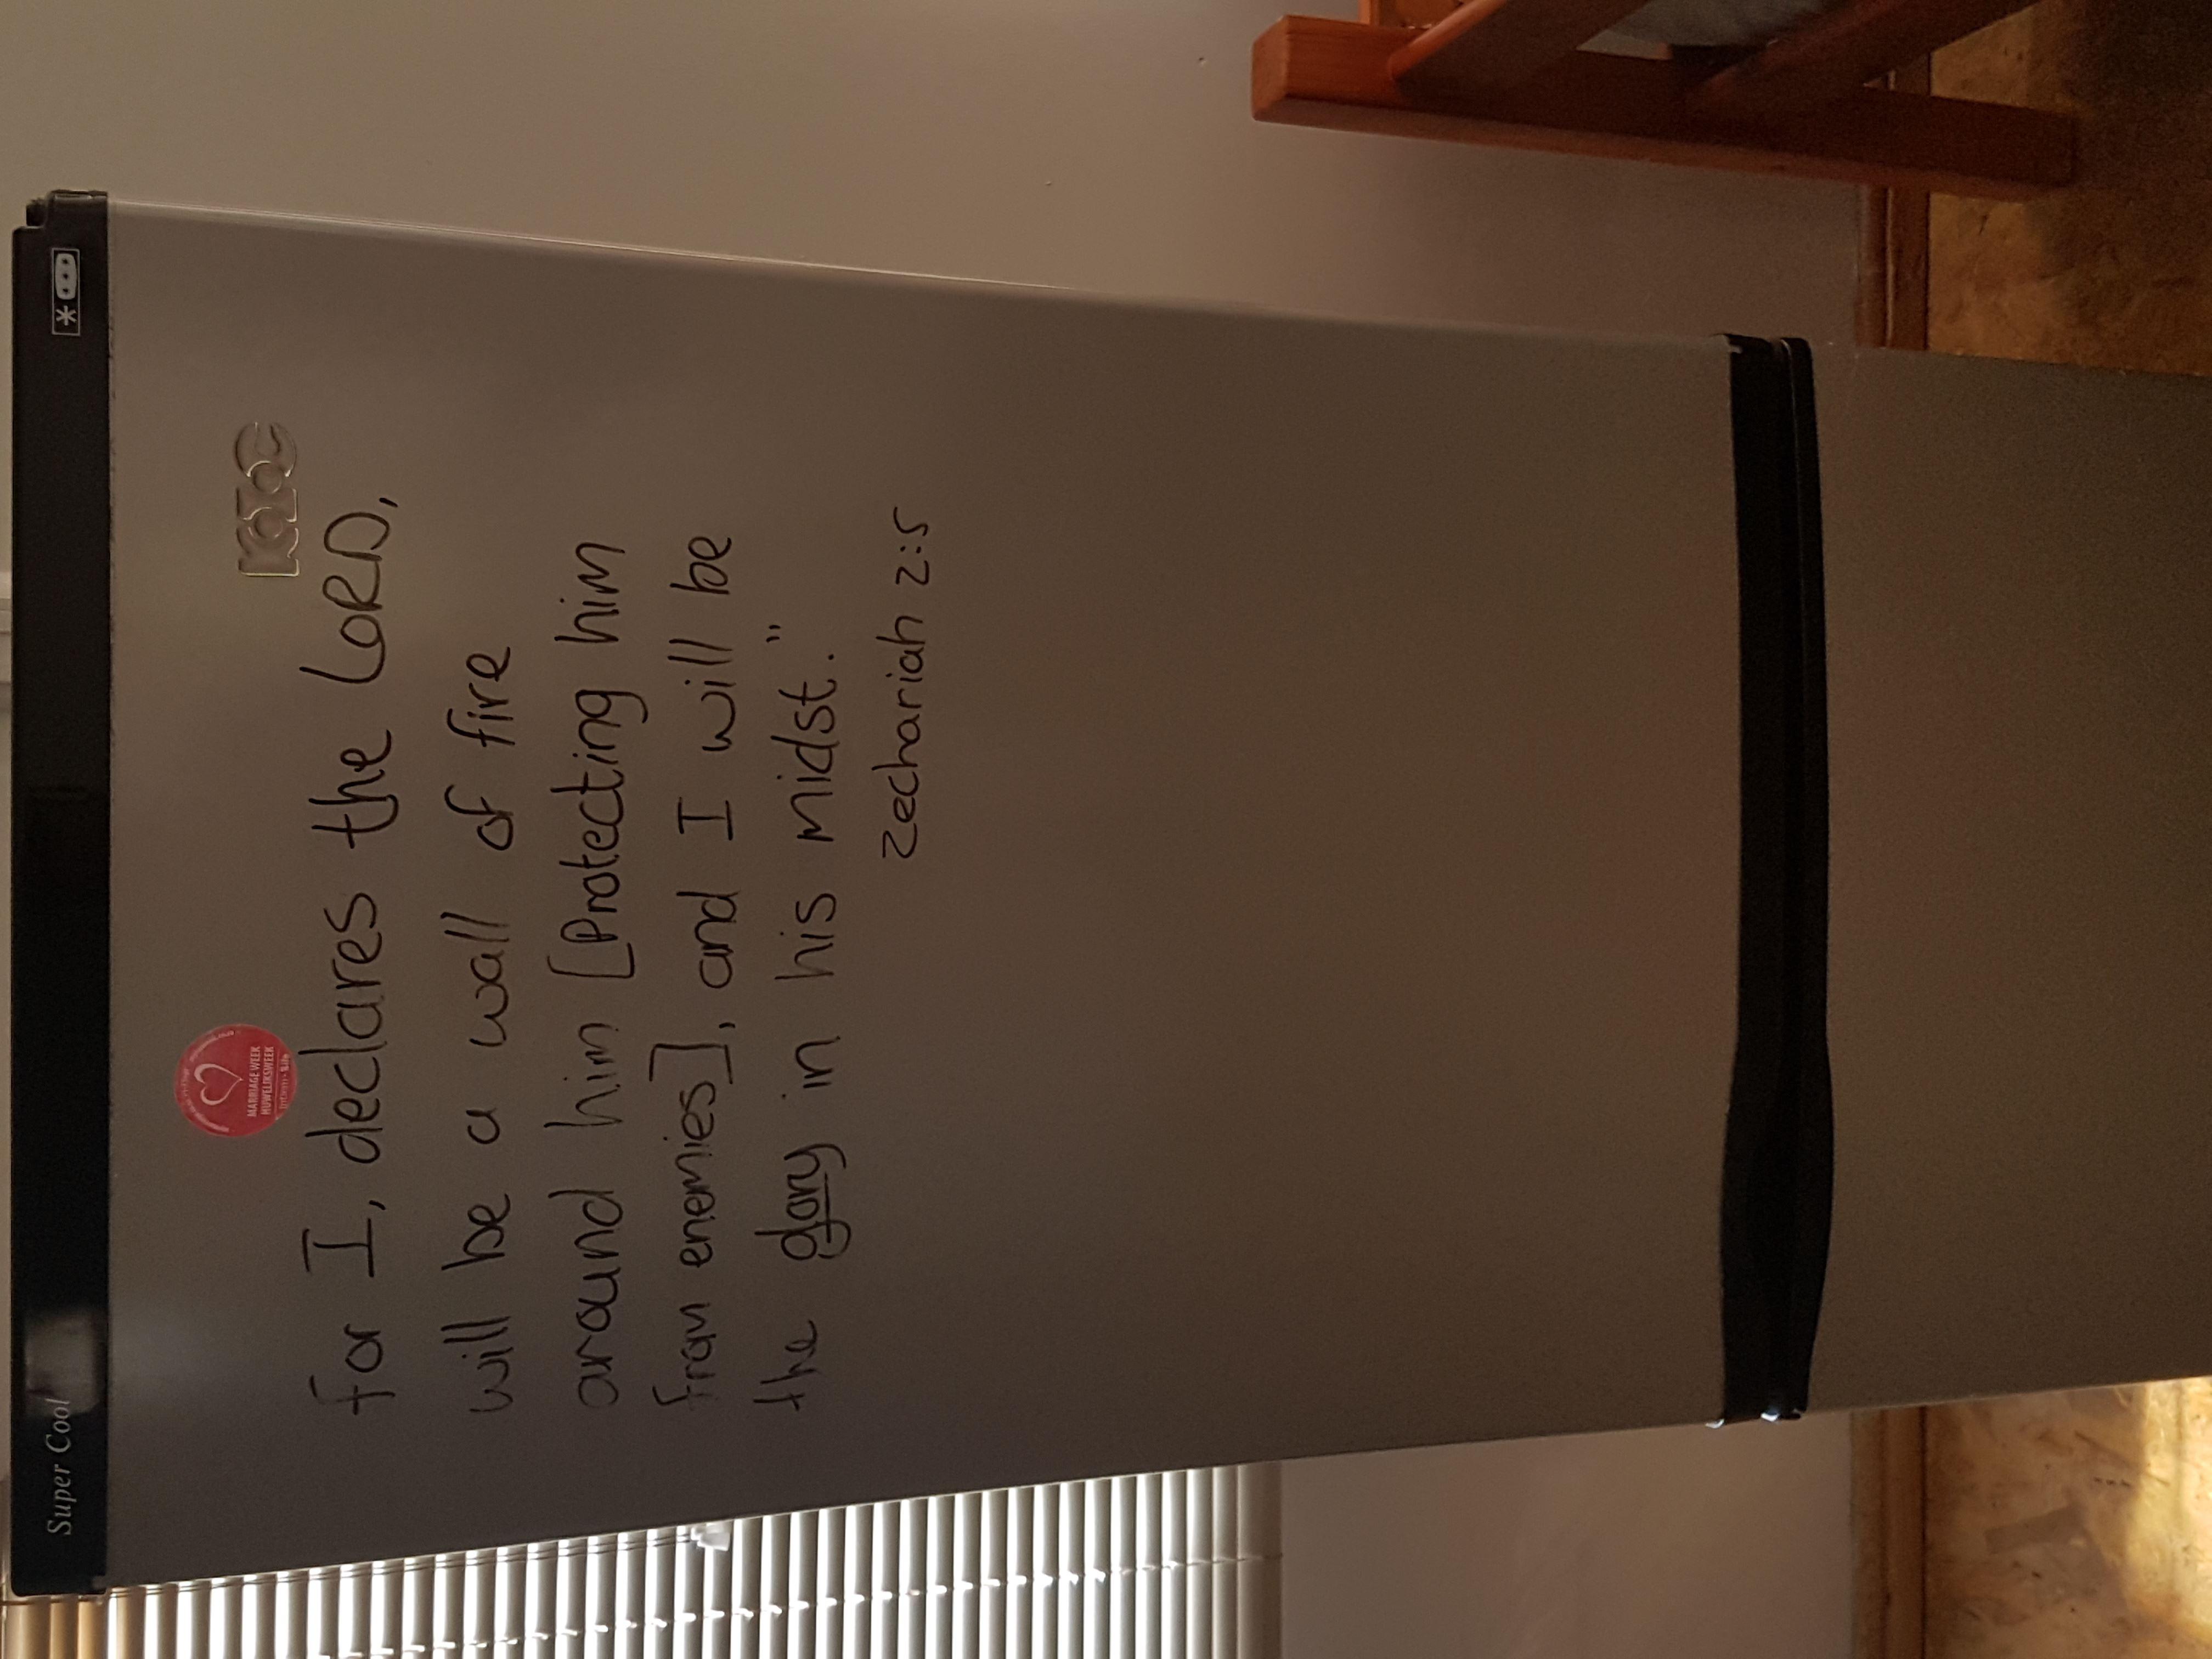 Super Cool
KIC
MARRIAGE WEEK
HUWELIKSWEEK
For I, declares the LORD,
will be a wall of fire
around him [Protecting him
from enemies], and I will be
the glory in his midst."
Zechariah 2:5